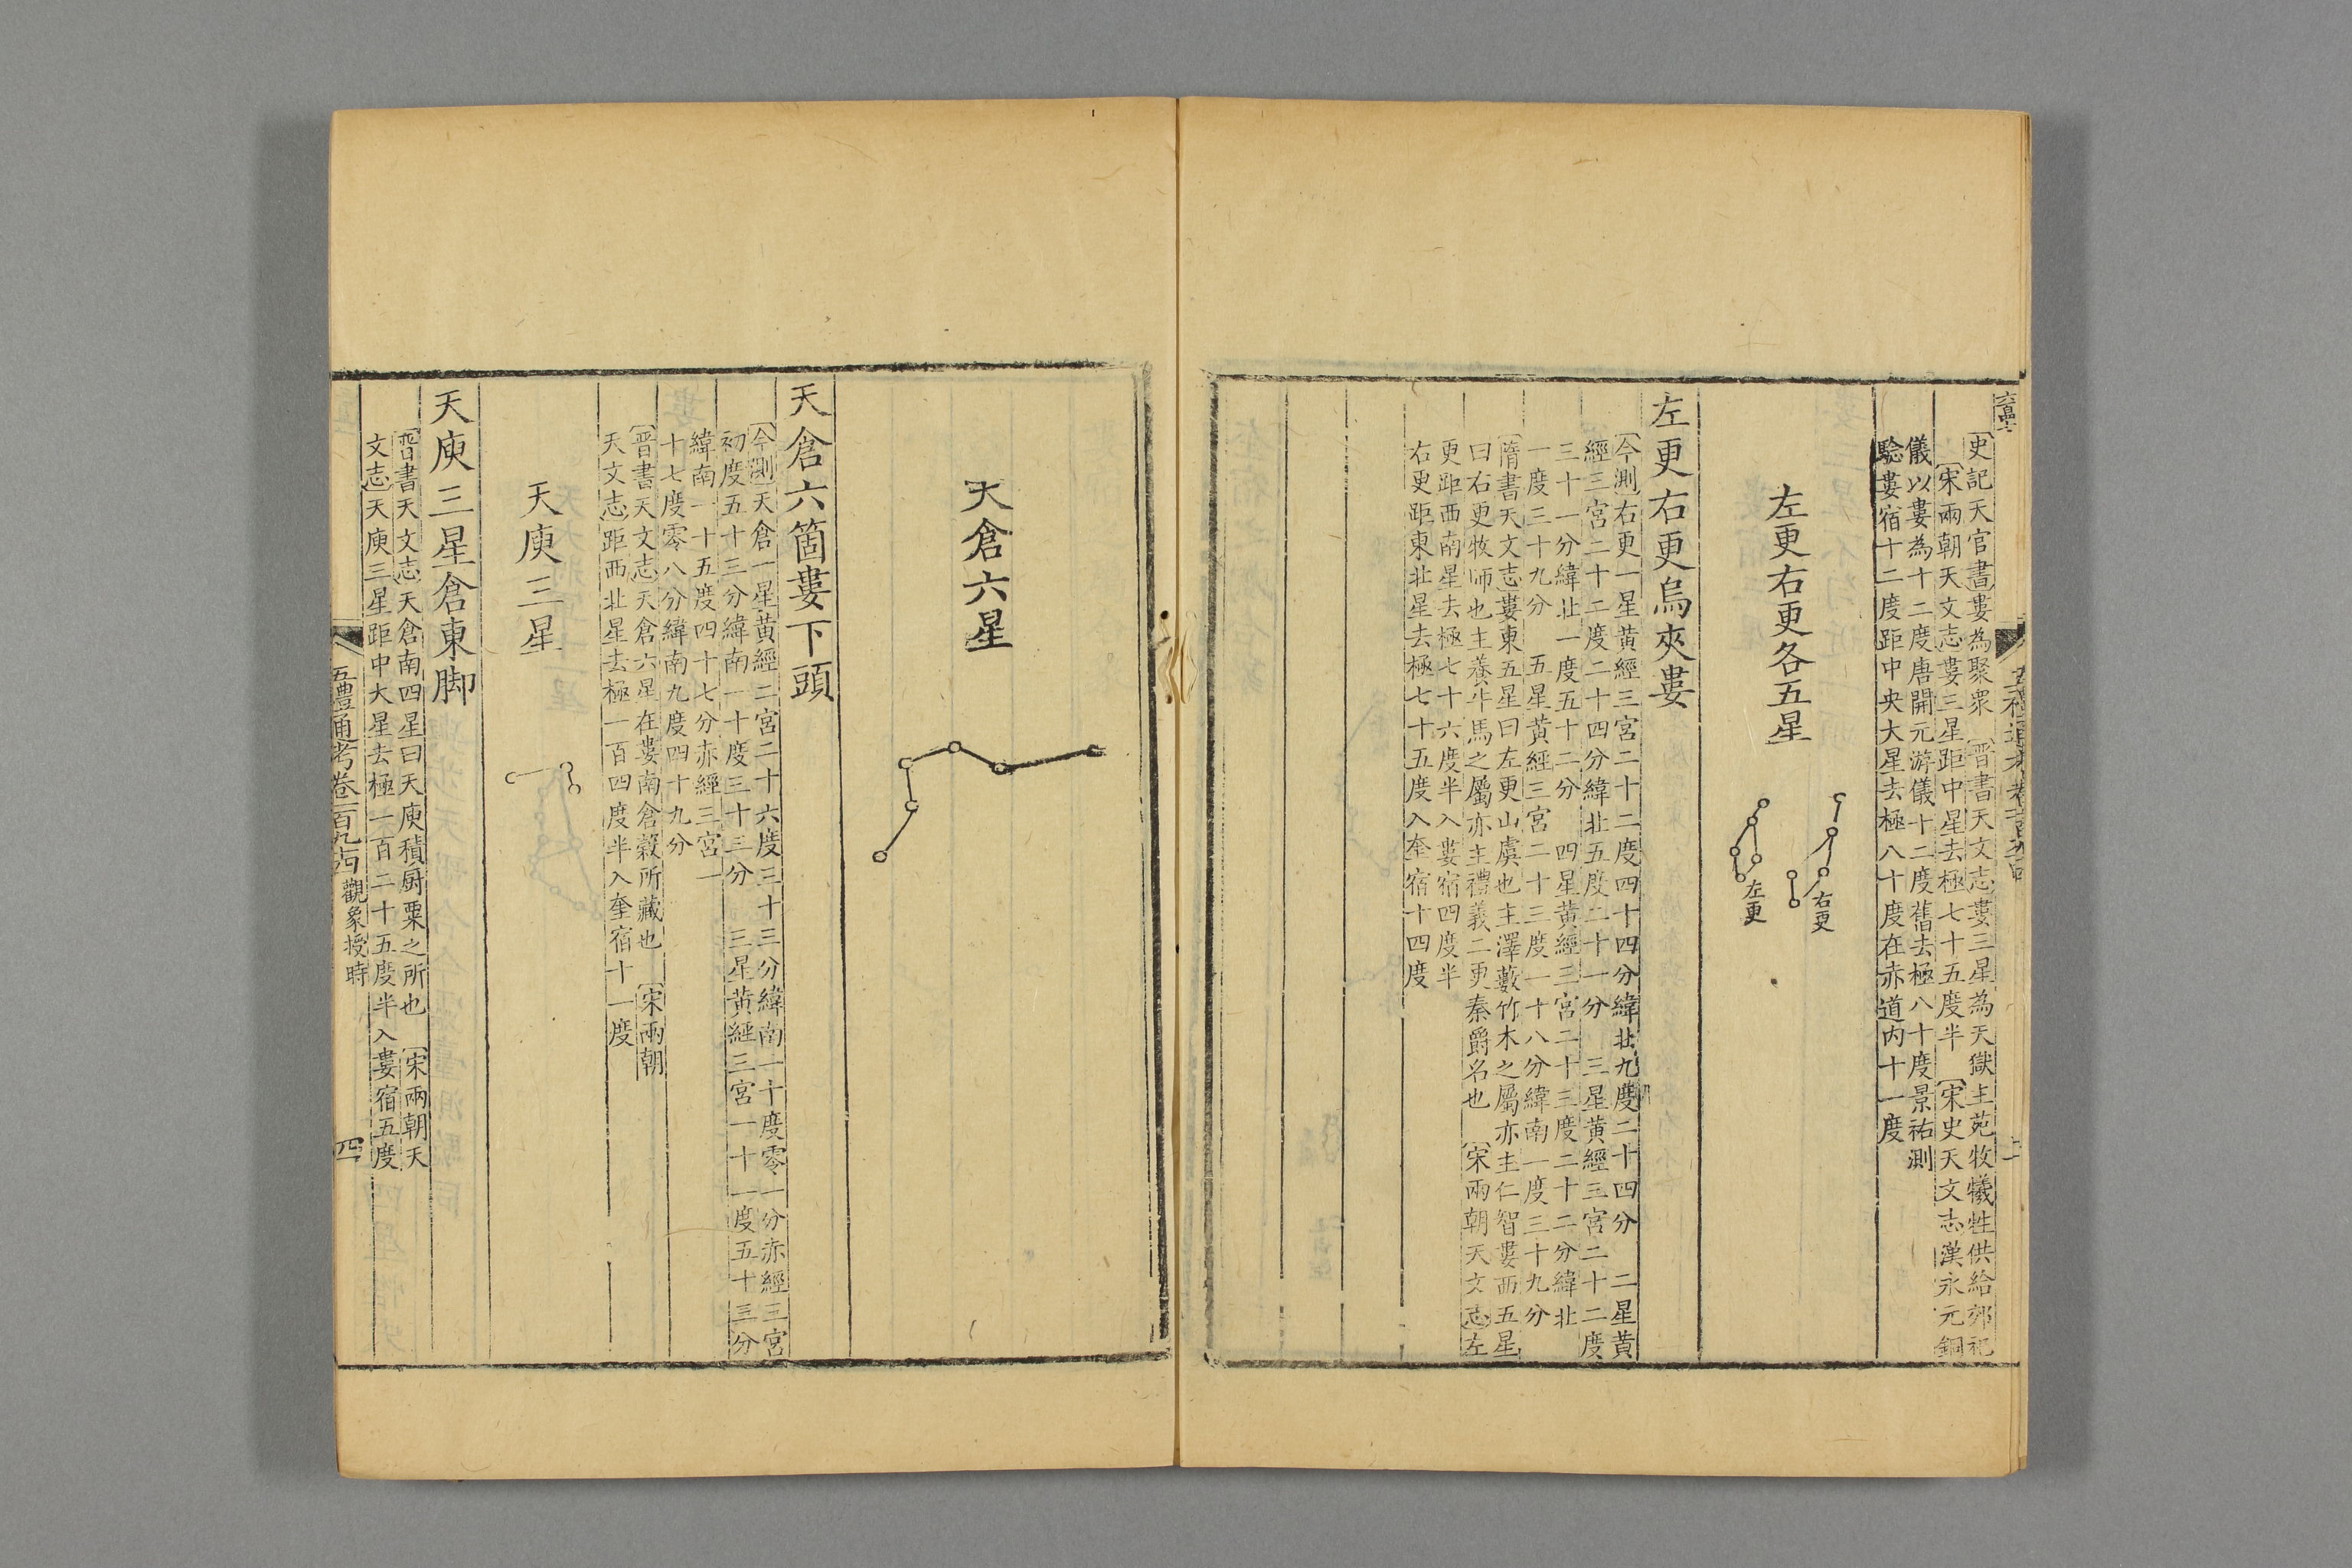 史記天官書婁為聚衆 晉書天文志婁三星為天獄主苑牧犧牲供給郊祀
宋兩朝天文志婁三星距中星去極七十五度半 宋史天文志漢永元銅
儀以婁為十二度唐開元游儀十二度舊去極八十度景祐測
驗婁宿十二度距中央大星去極八十度在赤道内十一度
左更右更各五星
右更
左更
左更右更烏夾婁
今測右更一星黃經三宮二十二度四十四分緯北九度二十四分 二星黃
經三宮二十二度二十四分緯北五度二十一分 三星黃經三宮二十二度
三十一分緯北一度五十二分 四星黃經三宮二十三度二十二分緯北
一度三十九分 五星黃經三宮二十三度一十八分緯南一度三十九分
隋書天文志婁東五星曰左更山虞也主澤藪竹木之屬亦主仁智婁西五星
曰右更牧師也主養牛馬之屬亦主禮義二更秦爵名也 宋兩朝天文志左
更距西南星去極七十六度半入婁宿四度半
右更距東北星去極七十五度入奎宿十四度
天倉六星
天倉六箇婁下頭
今測天倉一星黃經二宮二十六度三十三分緯南一十度零一分赤經三宮
初度五十三分緯南一十度三十三分 三星黃經三宮一十一度五十三分
緯南一十五度四十七分赤經三宮一
十七度零八分緯南九度四十九分
晉書天文志天倉六星在婁南倉穀所藏也 宋兩朝
天文志距西北星去極一百四度半入奎宿十一度
天庾三星
天庾三星倉東脚
晉書天文志天倉南四星曰天庾積厨粟之所也 宋兩朝天
文志天庾三星距中大星去極一百二十五度半入婁宿五度
五禮通考卷一百九十四 觀象授時
四